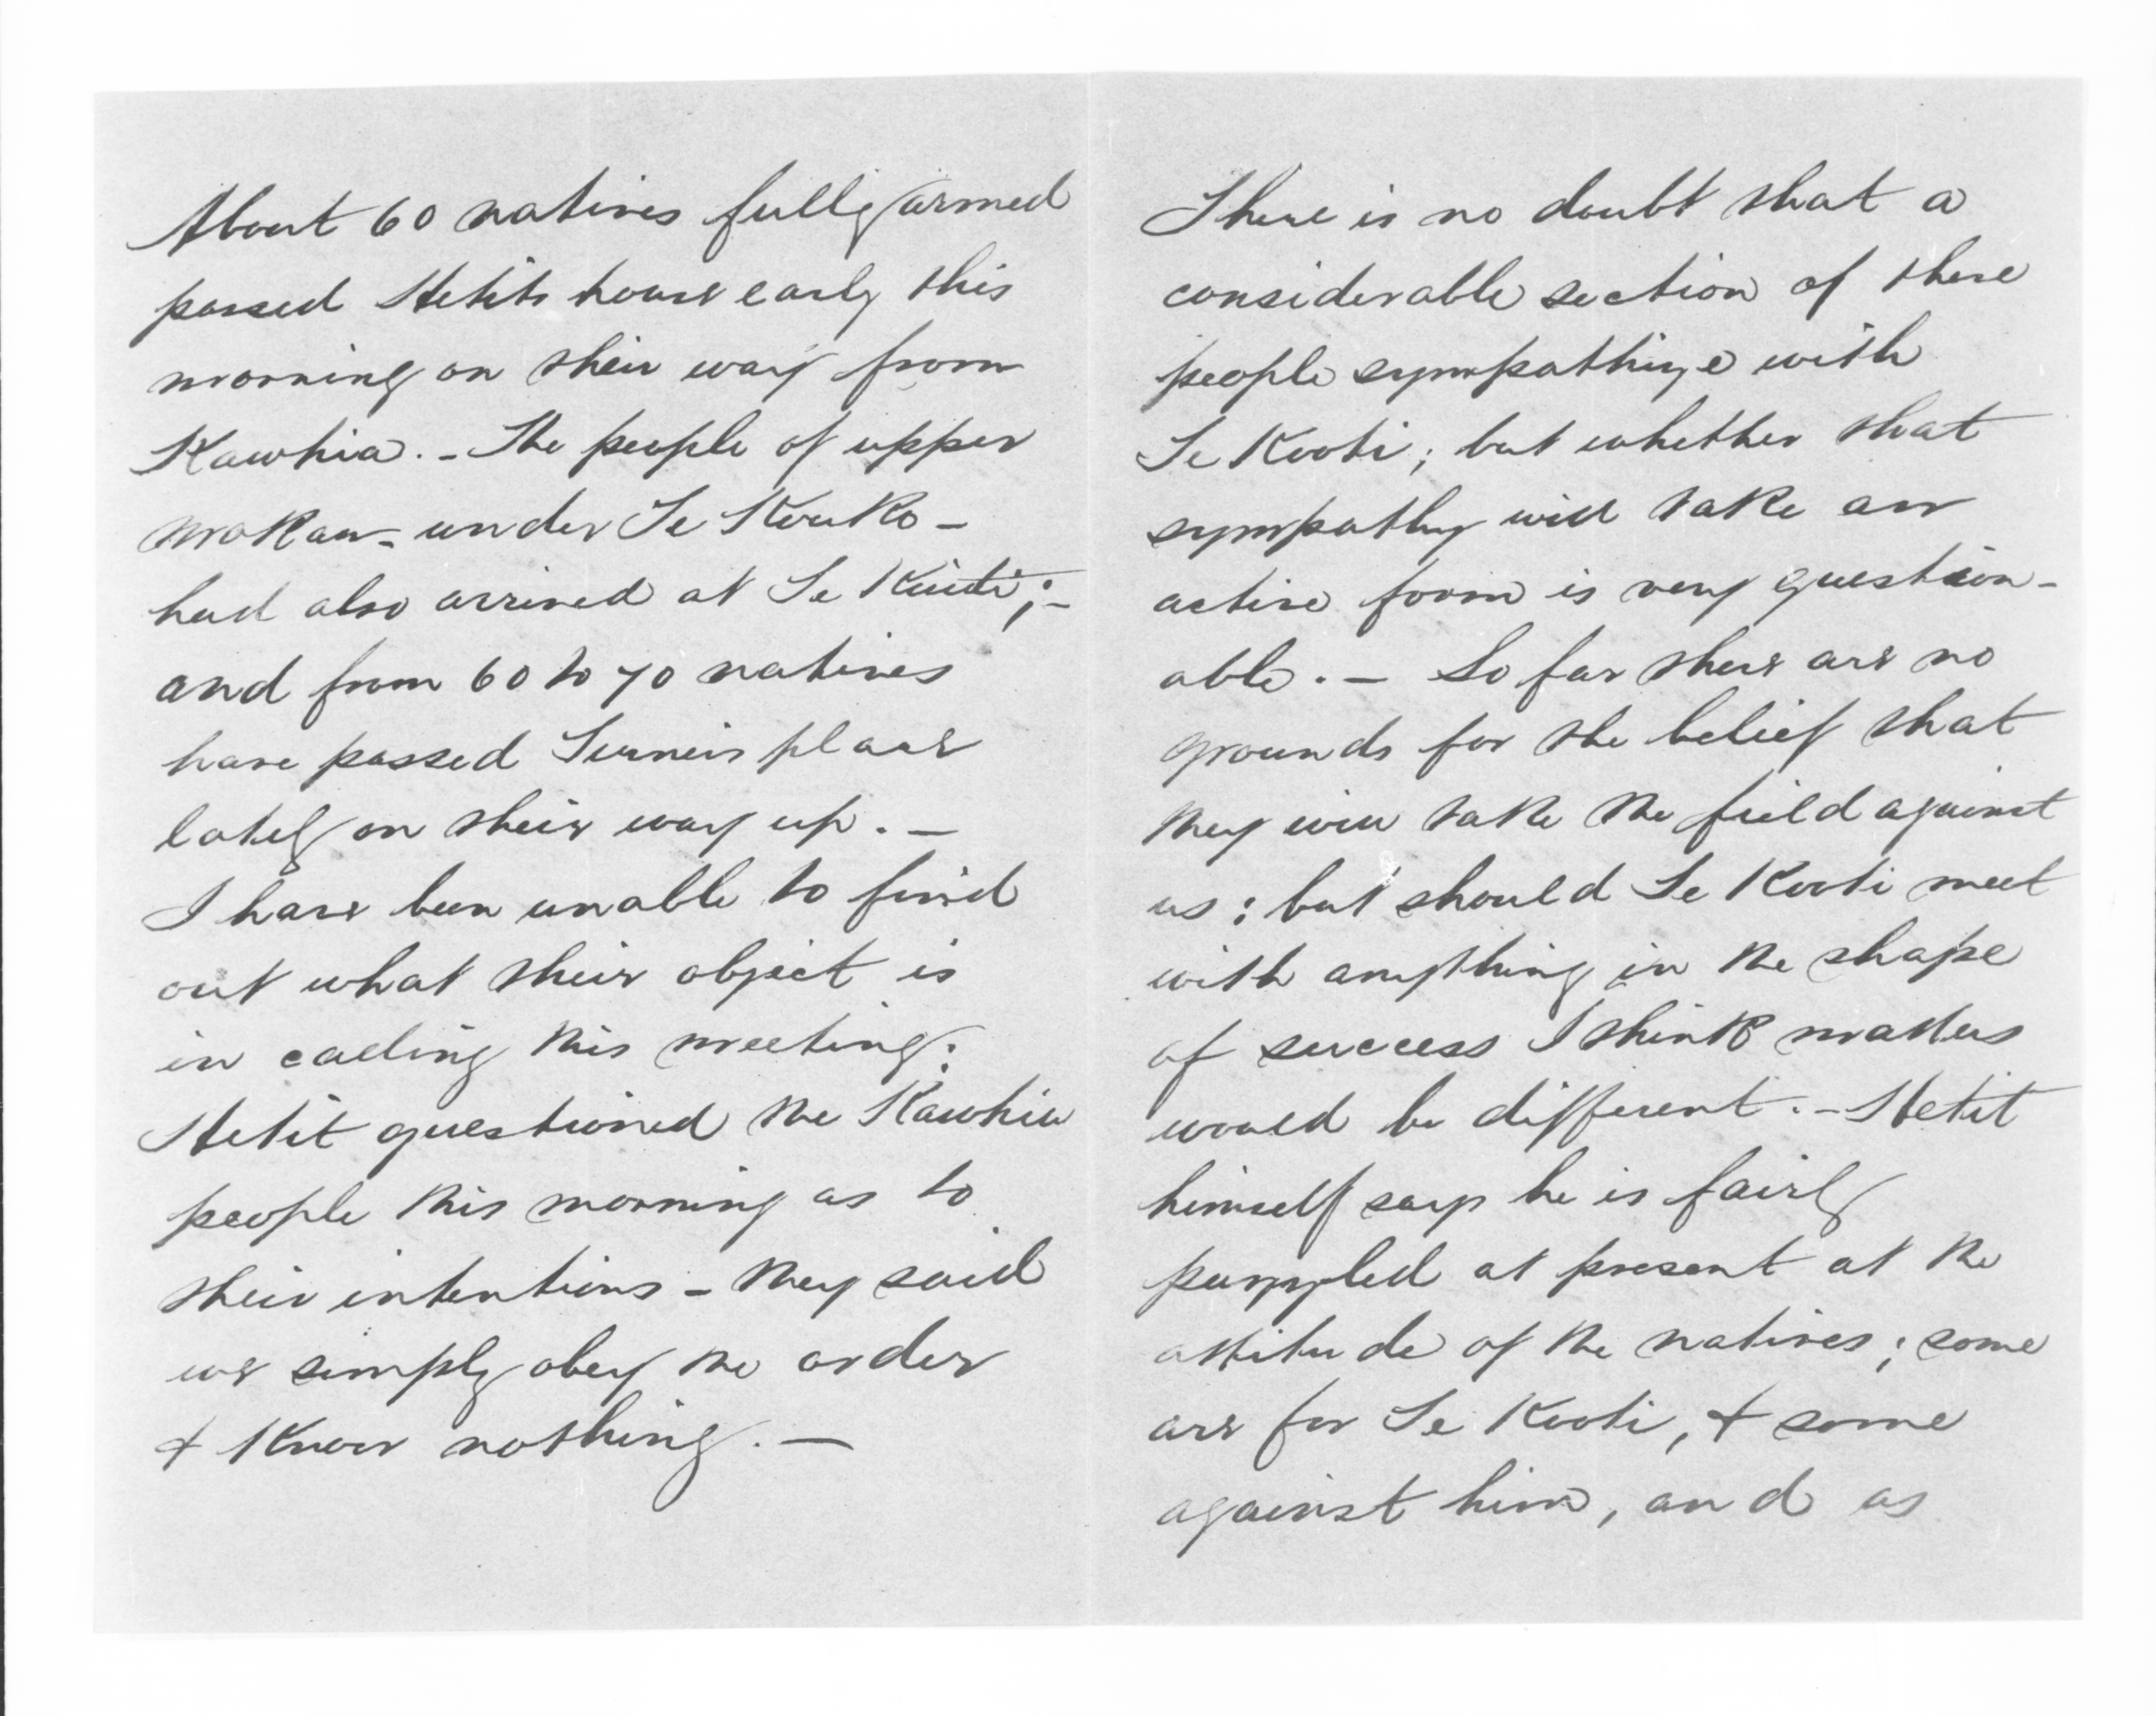 About 60 natives fully armed
passed Hetits house early this
morning on their way from
Kawhia. - The people of upper
Mokau - under Te Kouko -
had also arrived at Te Kuiti; -
and from 60 to 70 natives
have passed Turners place
lately on their way up. -
I have been unable to find
out what their object is
in calling this meeting:
Hetit questioned the Kawhia
people this morning as to
their intentions - they said
we simply obey the order
& know nothing. -
There is no doubt that a
considerable section of these
people sympathize with
Te Kooti; but whether that
sympathy will take an
active form is very question-
able. - So far there are no
grounds for the belief that
they will take the field against
us: but should Te Kooti meet
with anything in the shape
of success I think matters
would be different. - Hetit
himself says he is fairly
puzzled at present at the
attitude of the natives; some
are for Te Kooti, & some
against him, and as